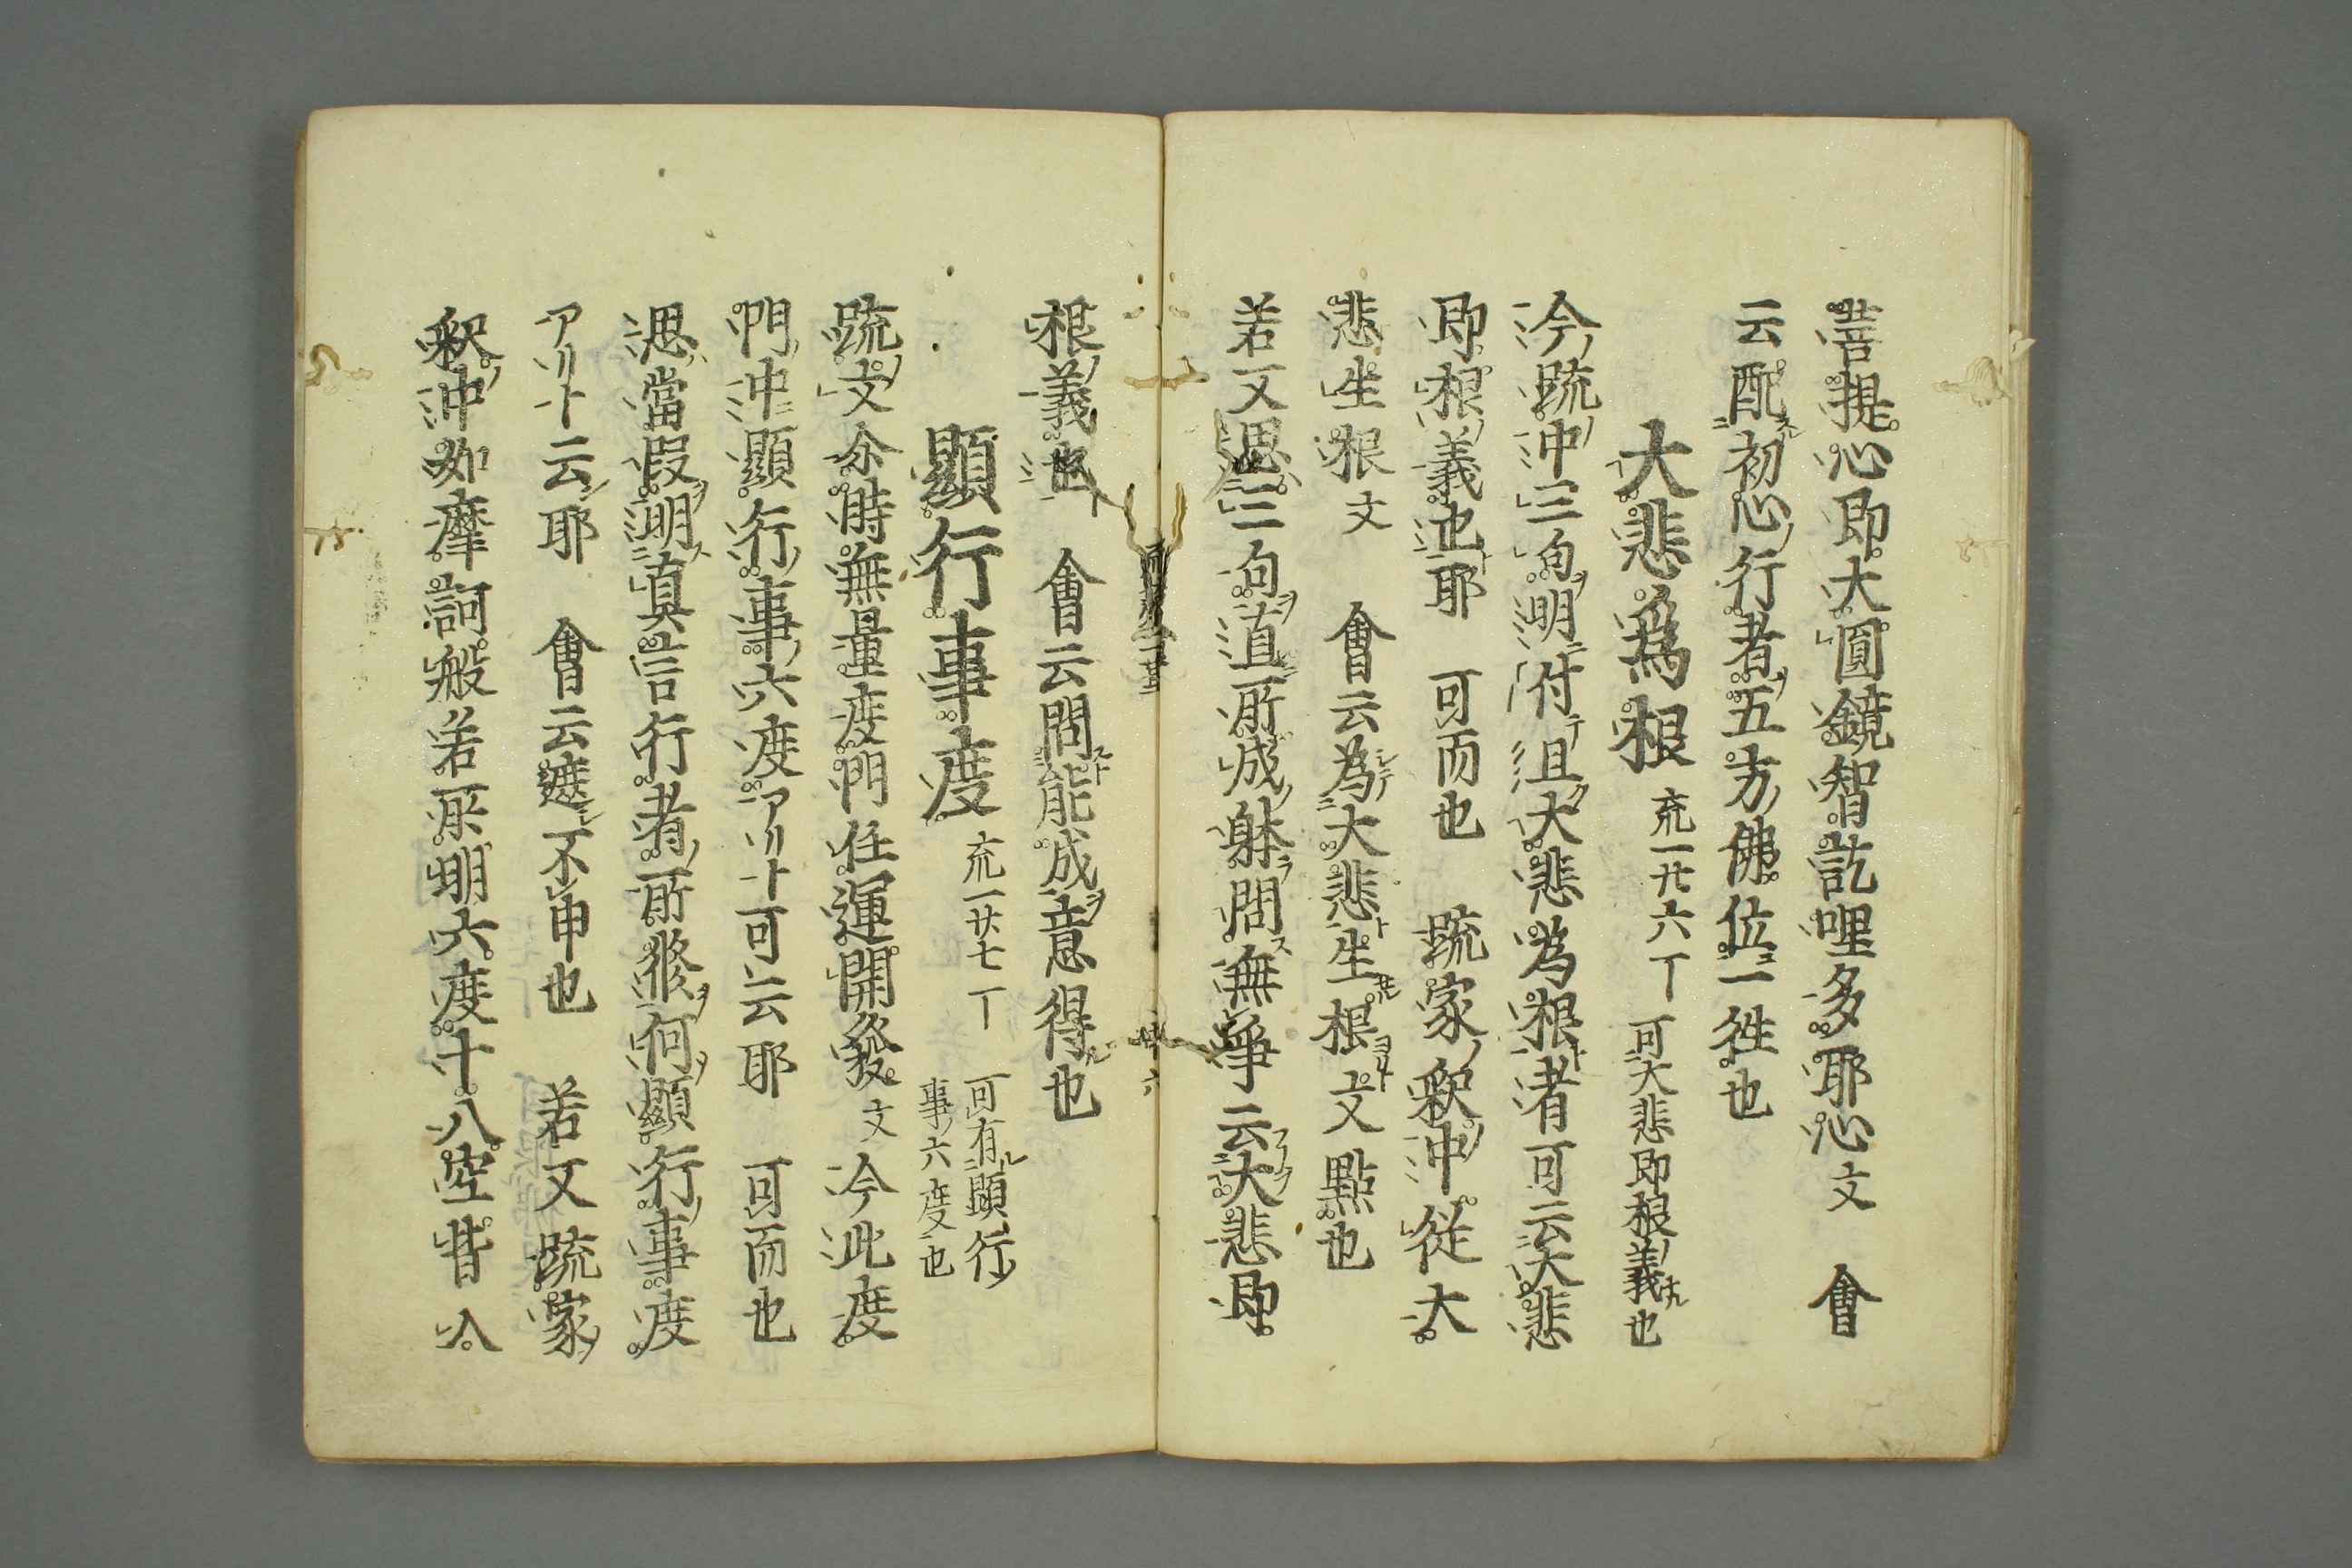 菩提心即大圓鏡智訖哩多耶心文　會
云配初心行者五方佛位一徃也
大悲為根　疏一廿六丁　可大悲即根義也
今疏中三句明付且大悲為根者可云大悲
即根義也耶　可而也　疏家釈中從大
悲生根文　會云為大悲生根文點也
若又思三句直所成躰問無爭云大悲即
根義也　會云問能成意得也
顯行事度　疏一廿七丁　可有顯行
事六度也
疏文介時無量度門任運開發文今此度
門中顯行事六度アリト可云耶　可而也
思當假明真言行者所修何顯行事度
アリト云耶　會云遮不申也　若又疏家
釈中如摩訶般若所明六度十八空昔八